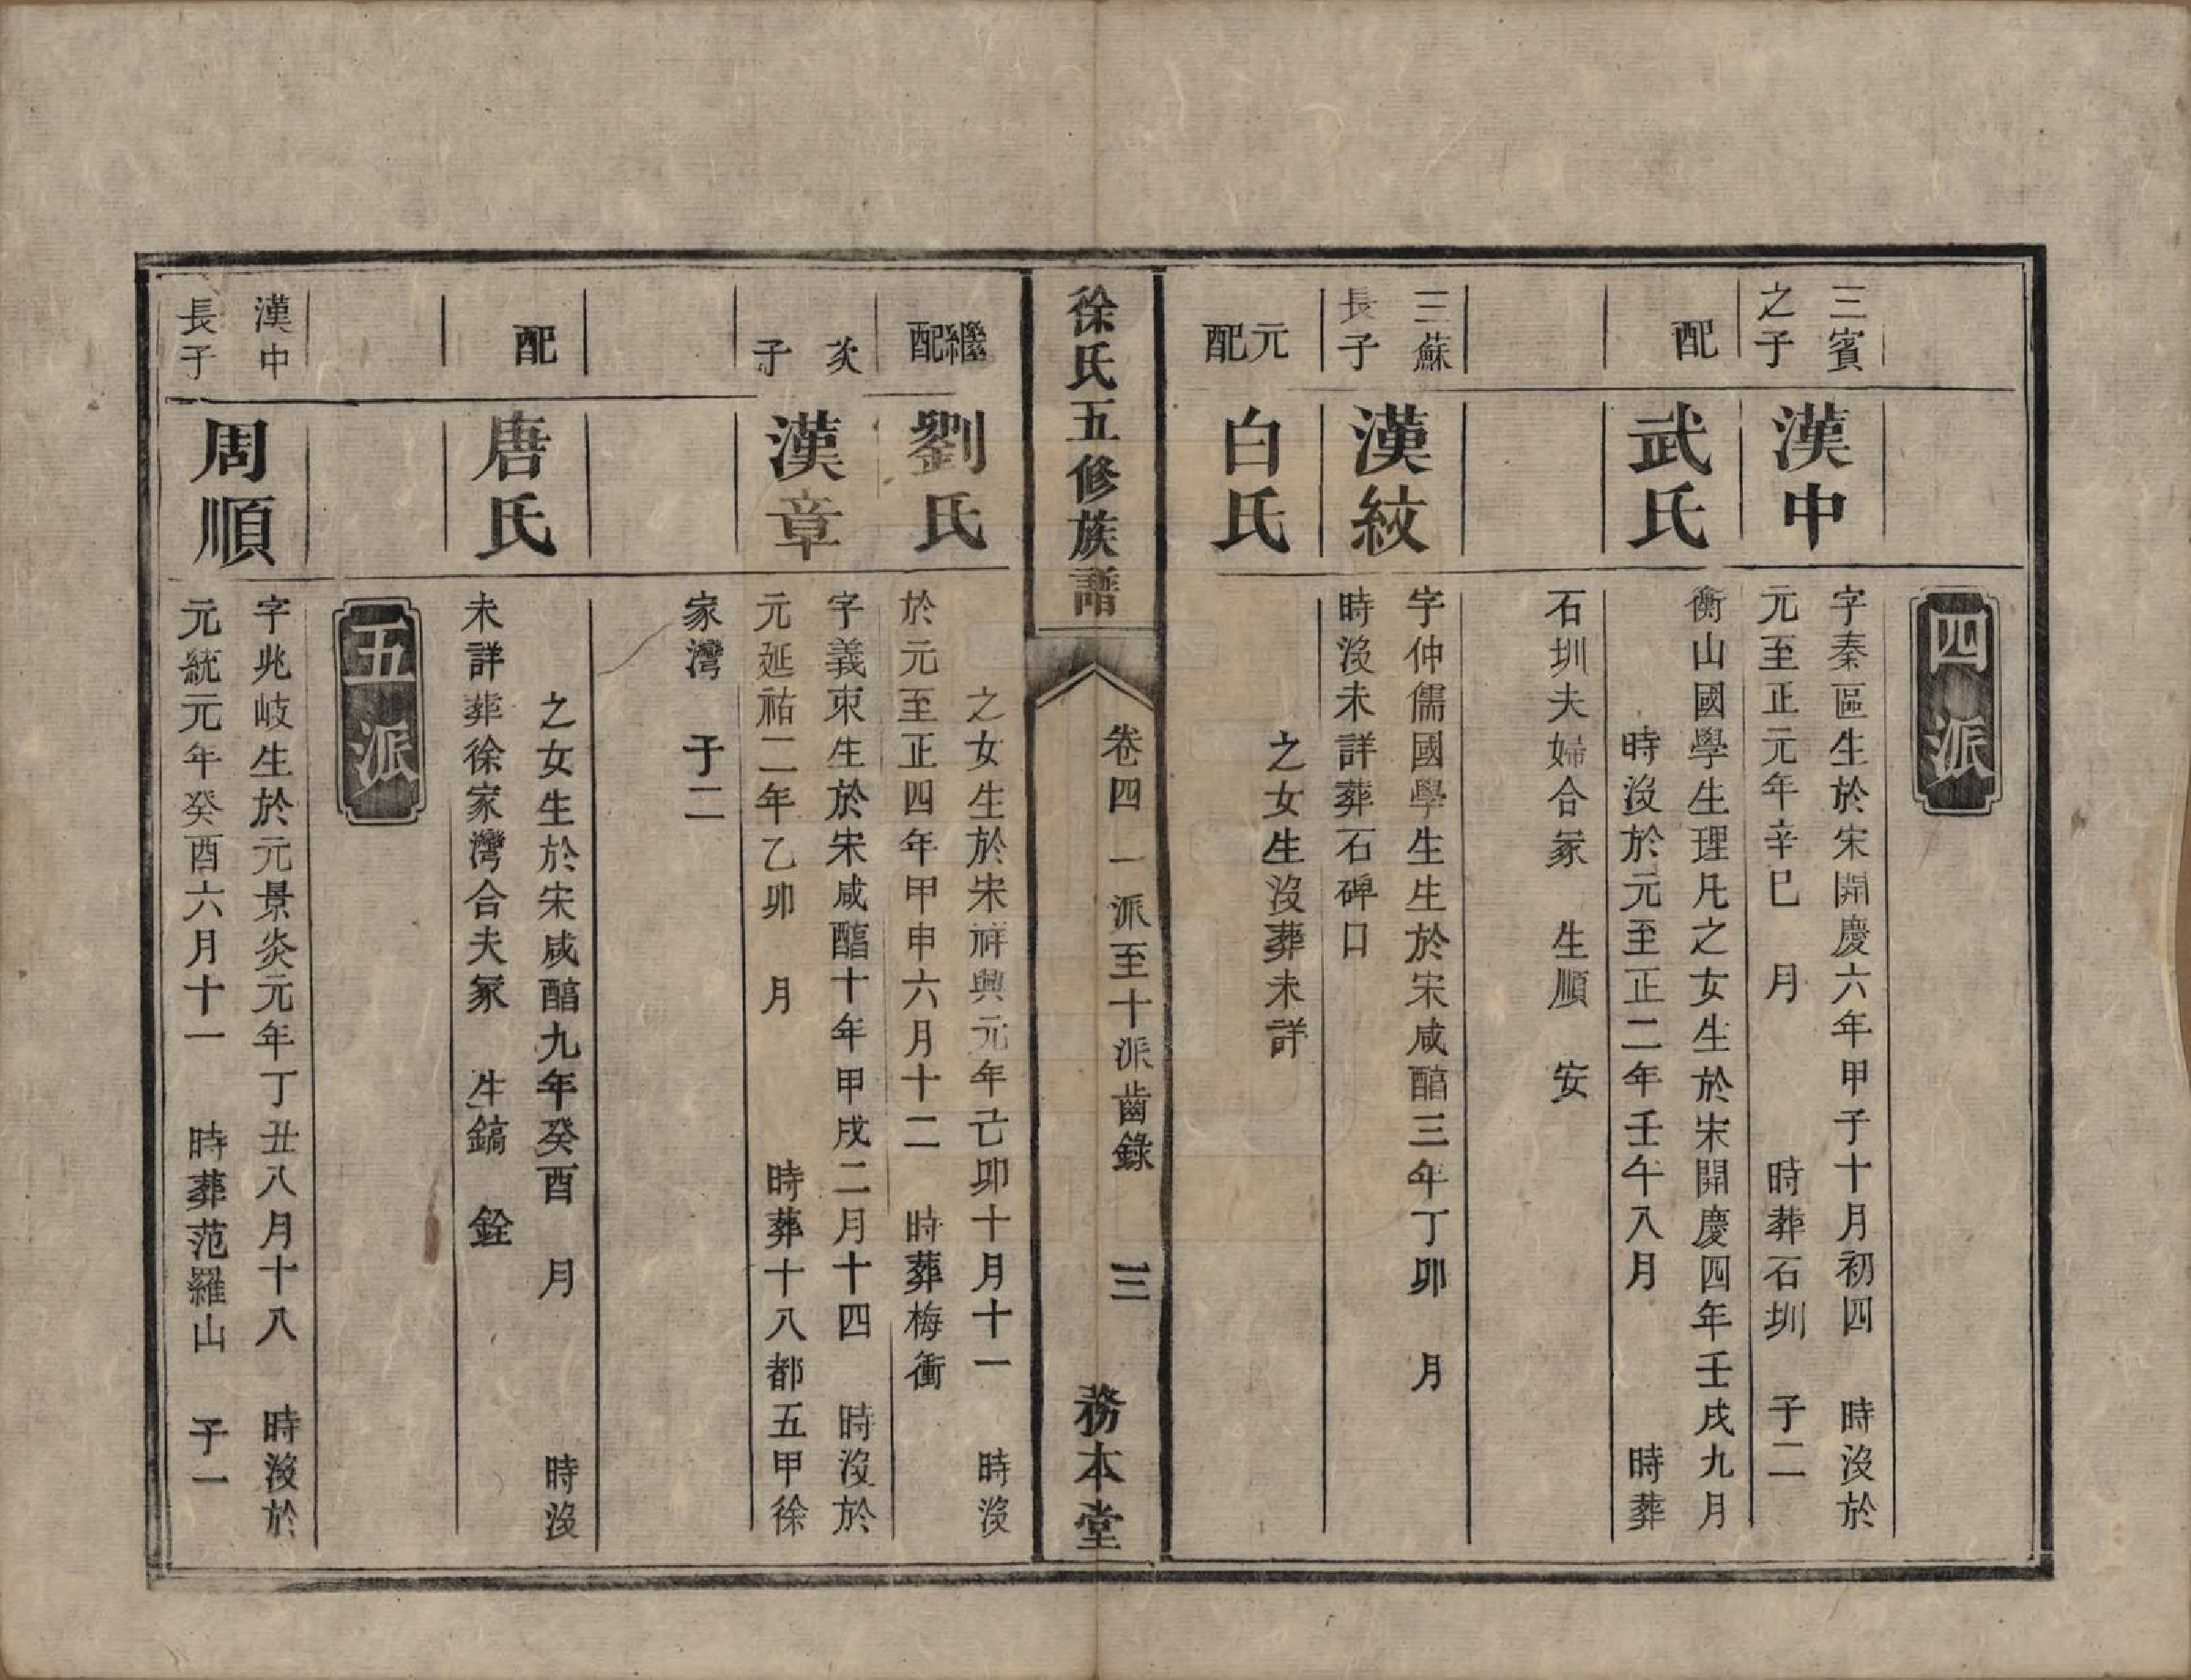 四派
三賓
之子
漢中
字秦區生於宋開慶六年甲子十月初四　時沒於
元至正元年辛巳　月　　時葬石圳　子二
配
武氏
衡山國學生理凡之女生於宋開慶四年壬戌九月
時沒於元至正二年壬午八月　　時葬
石圳夫婦合冢　生順　安
三蘇
長子
漢紋
字仲儒國學生生於宋咸醕三年丁卯　月
時沒未詳葬石碑口
元配
白氏
之女生沒葬未詳
徐氏五修族譜
卷四　一派至十派齒錄　三
務本堂
繼配
劉氏
之女生於宋祥興元年己卯十月十一　時沒
於元至正四年甲申六月十二　時葬梅衝
次
子
漢章
字義東生於宋咸醕十年甲戌二月十四　時沒於
元延祐二年乙卯　月　　時葬十八都五甲徐
家灣　子二
配
唐氏
之女生於宋咸醕九年癸酉　月　　時沒
未詳葬徐家灣合夫冢　生鎬　銓
五派
漢中
長子
周順
字兆岐生於元景炎元年丁丑八月十八　時沒於
元統元年癸酉六月十一　時葬范羅山　子一